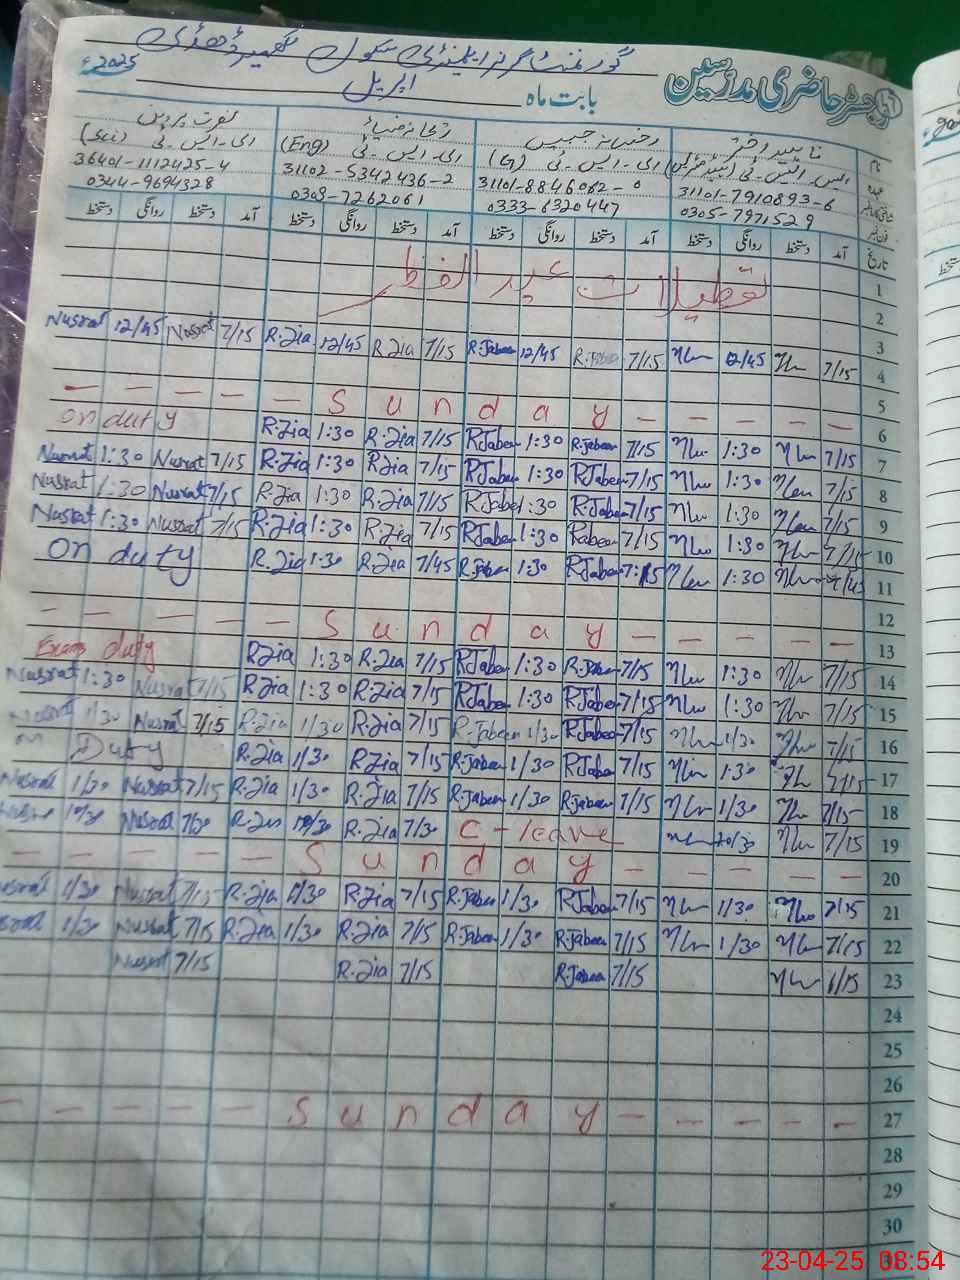 رجسٹر حاضری مدرسین گورنمنٹ گرلز ایلیمنٹری سکول
بابت ماہ اپریل 2025ء
نام ناہید اختر رخسانہ جبیں ریحانہ ضیاء نصرت پروین
عہدہ ایس۔ایس۔ٹی ای۔ایس۔ٹی (G) ای۔ایس۔ٹی (Eng) ای۔ایس۔ٹی (Sci)
31101-7910893-6 31101-8846062-0 31102-5342436-2 36401-1112425-4
0305-7971529 0333-6320447 0308-7262061 0344-9694328
تاریخ آمد دستخط روانگی دستخط آمد دستخط روانگی دستخط آمد دستخط روانگی دستخط آمد دستخط روانگی دستخط
1
تعطیلات عید الفطر
2
3
Nusrat 12/45 Nusrat 7/15 R.Zia 12/45 R.Zia 7/15 R.Jabeen 12/45 R.Jabeen 7/15 12/45 7/15 4
5
— — — — — Sunday — — — — — 6
on duty R.Zia 1:30 R.Zia 7/15 R.Jabeen 1:30 R.Jabeen 7/15 1:30 7/15 7
Nusrat 1:30 Nusrat 7/15 R.Zia 1:30 R.Zia 7/15 R.Jabeen 1:30 R.Jabeen 7/15 1:30 7/15 8
Nusrat 1:30 Nusrat 7/15 R.Zia 1:30 R.Zia 7/15 R.Jabeen 1:30 R.Jabeen 7/15 1:30 7/15 9
Nusrat 1:30 Nusrat 7/15 R.Zia 1:30 R.Zia 7/15 R.Jabeen 1:30 Rabeen 7/15 1:30 7/15 10
On duty R.Zia 1:30 R.Zia 7/45 R.Jabeen 1:30 R.Jabeen 7:15 1:30 7/45 11
12
— — — — — Sunday — — — — — 13
Exam duty R.Zia 1:30 R.Zia 7/15 R.Jabeen 1:30 R.Jabeen 7/15 1:30 7/15 14
Nusrat 1:30 Nusrat 7/15 R.Zia 1:30 R.Zia 7/15 R.Jabeen 1:30 R.Jabeen 7/15 1:30 7/15 15
Nusrat 1/30 Nusrat 7/15 R.Zia 1/30 R.Zia 7/15 R.Jabeen 1/30 R.Jabeen 7/15 1/30 7/15 16
on Duty R.Zia 1/30 R.Zia 7/15 R.Jabeen 1/30 R.Jabeen 7/15 1:30 7/15 17
Nusrat 1/30 Nusrat 7/15 R.Zia 1/30 R.Zia 7/15 R.Jabeen 1/30 R.Jabeen 7/15 1/30 7/15 18
10/30 Nusrat 7/30 R.Zia 10/30 R.Zia 7/30 C-leave 10/30 7/15 19
— — — — — Sunday — — — — — 20
Nusrat 1/30 Nusrat 7/15 R.Zia 1/30 R.Zia 7/15 R.Jabeen 1/30 R.Jabeen 7/15 1/30 7/15 21
Nusrat 1/30 Nusrat 7/15 R.Zia 1/30 R.Zia 7/15 R.Jabeen 1/30 R.Jabeen 7/15 1/30 7/15 22
Nusrat 7/15 R.Zia 7/15 R.Jabeen 7/15 7/15 23
24
25
26
— — — — — Sunday — — — — — 27
28
29
30
23-04-25 08:54